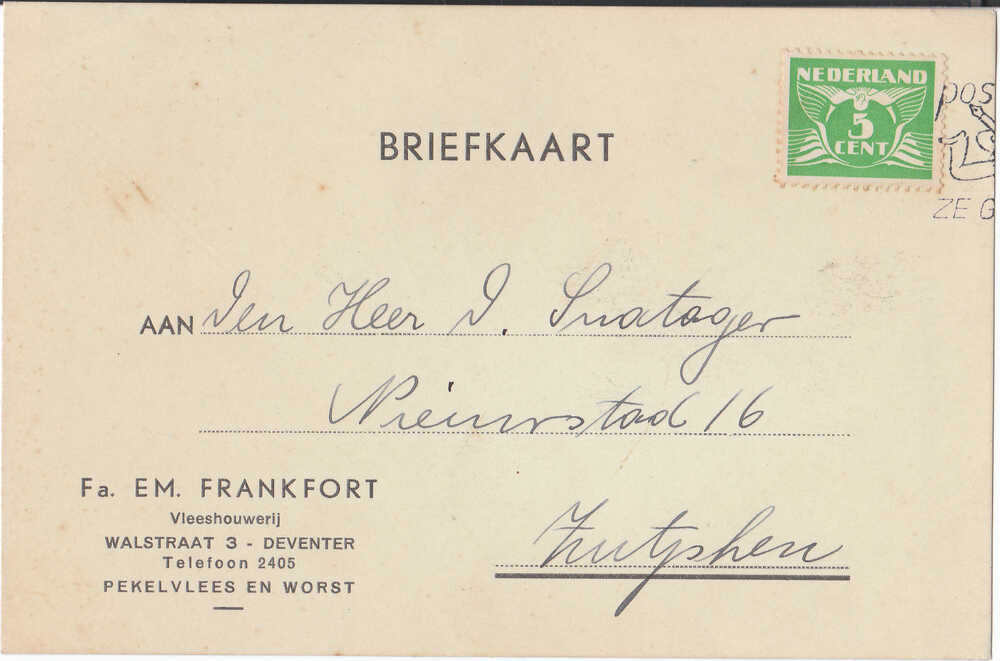 NEDERLAND
5
CENT
POS
ZE G
BRIEFKAART
AAN Den Heer D. Snatager
Nieuwstad 16
Zutphen
Fa. EM. FRANKFORT
Vleeshouwerij
WALSTRAAT 3 - DEVENTER
Telefoon 2405
PEKELVLEES EN WORST